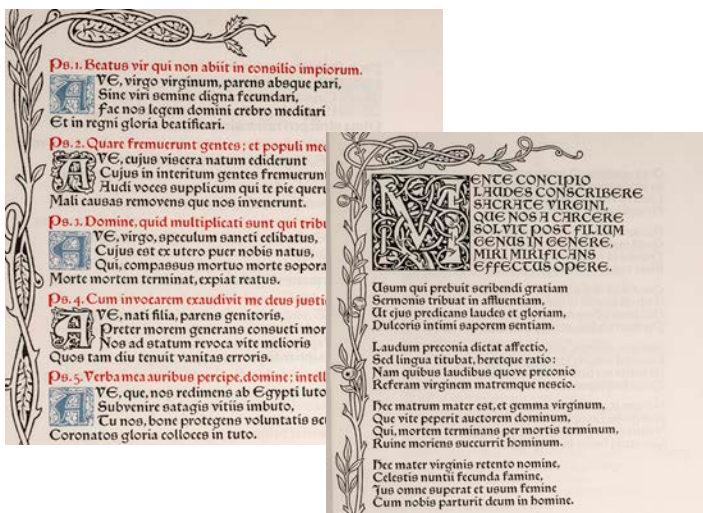 Ps. 1. Beatus vir qui non abiit in consilio impiorum.
AVE, virgo virginum, parens absque pari,
Sine viri semine digna fecundari,
Fac nos legem domini crebro meditari
Et in regni gloria beatificari.
Ps. 2. Quare fremuerunt gentes: et populi
AVE, cujus viscera natum ediderunt
Cujus in interitum gentes fremuerun
Audi voces supplicum qui te pie
Mali causas removens que nos invenerunt.
Ps. 3. Domine, quid multiplicati sunt qui tribu
AVE, virgo, speculum sancti celibatus,
Cujus est ex utero puer nobis natus,
Qui, compassus mortuo morte sopora
Morte mortem terminat, expiat reatus.
Ps. 4. Cum invocarem exaudivit me deus justi
AVE, nati filia, parens genitoris,
Preter morem generans consueti mor
Nos ad statum revoca vite melioris
Quos tam diu tenuit vanitas erroris.
Ps. 5. Verba mea auribus percipe, domine: intell
AVE, que, nos redimens ab Egypti luto
Subvenire satagis vitiis imbuto,
Tu nos, bone protegens voluntatis
Coronatos gloria colloces in tuto.
MENTE CONCIPIO
LAUDES CONSCRIBERE
SACRATE VIRGINI,
QUE NOS A CARCERE
SOLVIT POST FILIUM
GENUS IN GENERE,
MIRI MIRIFICANS
EFFECTUS OPERE.
Usum qui prebuit scribendi gratiam
Sermonis tribuat in affluentiam,
Ut ejus predicans laudes et gloriam,
Dulcoris intimi saporem sentiam.
Laudum preconia dictat affectio,
Sed lingua titubat, heretque ratio:
Nam quibus laudibus quove preconio
Referam virginem matremque nescio.
Hec matrum mater est, et gemma virginum,
Que vite peperit auctorem dominum,
Qui, mortem terminans per mortis terminum,
Ruine moriens succurrit hominum.
Hec mater virginis retento nomine,
Celestis nuntii fecunda famine,
Jus omne superat et usum femine
Cum nobis parturit deum in homine.